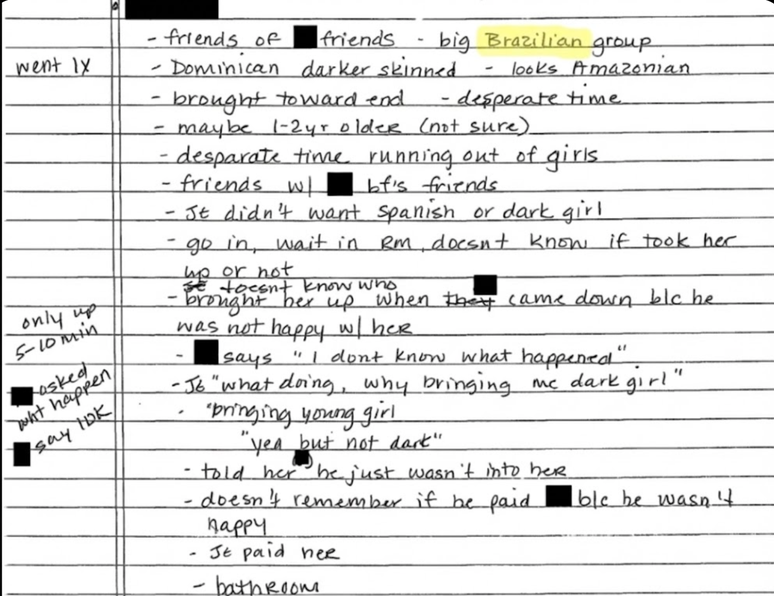 - friends of friends - big Brazilian group
went 1x
- Dominican darker skinned - looks Amazonian
- brought toward end - desperate time
- maybe 1-2yr older (not sure)
- desparate time running out of girls
- friends w/ bf's friends
- JE didn't want spanish or dark girl
- go in, wait in Rm, doesnt know if took her
up or not
JE doesnt know who
- brought her up when they came down b/c he
was not happy w/ her
only up
5-10 min
- says "I dont know what happened"
asked
wht happen
- JE "what doing, why bringing me dark girl"
say IDK
- "bringing young girl
"yea but not dark"
- told her he just wasn't into her
- doesn't remember if he paid b/c he wasn't
happy
- JE paid her
- bathroom